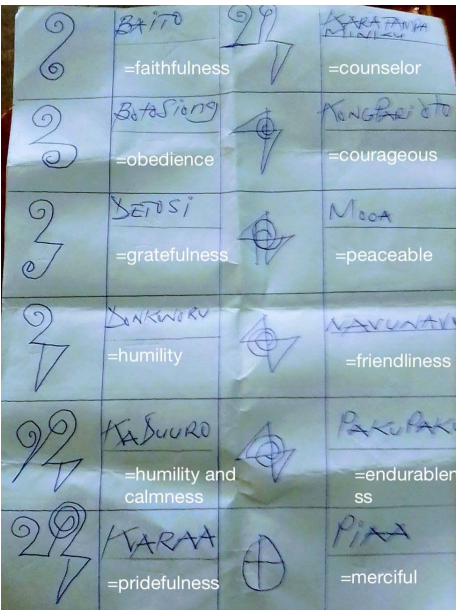 BAITO
=faithfulness
KARATANHA
MINIKU
=counselor
BOTOSIONG
=obedience
KONGPARIOTO
=courageous
DETOSI
=gratefulness
MOOA
=peaceable
DONKWORU
=humility
NAVUNAVU
=friendliness
KABUURO
=humility and
calmness
PAKUPAKU
=endurablen
ss
KARAA
=pridefulness
PIAA
=merciful